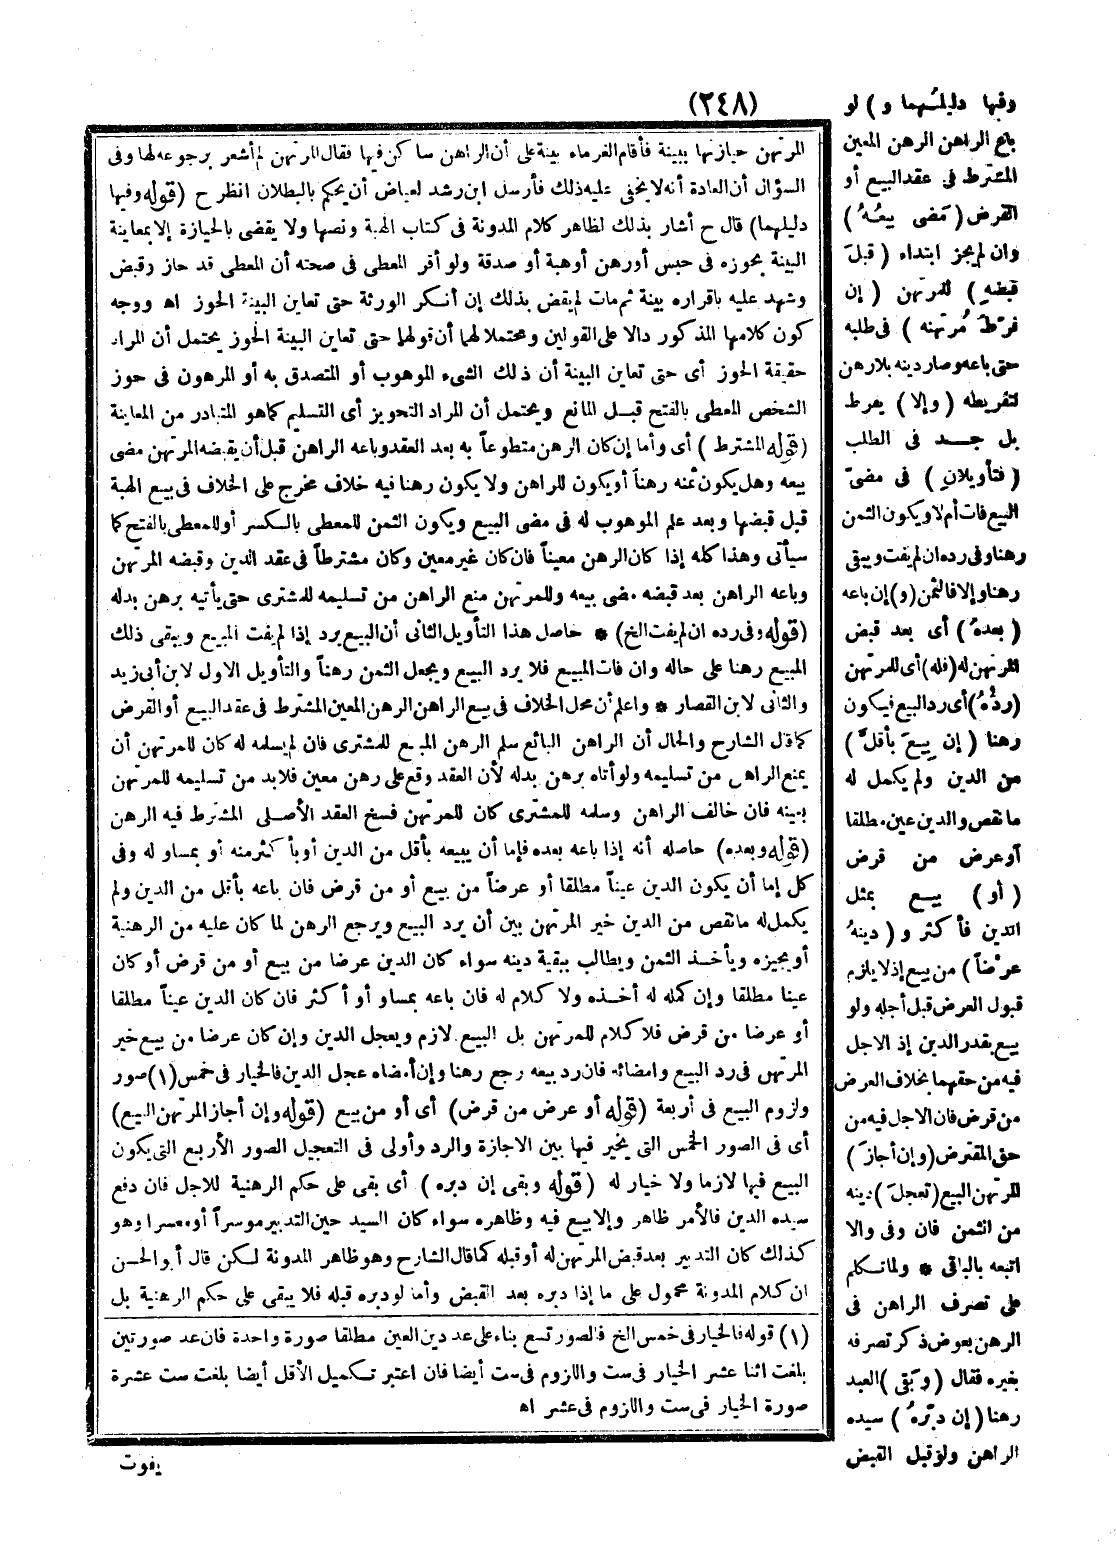 (٢٤٨)
وفيها دليلهما و) لو
باع الراهن الرهن المعين
المشترط فى عقد البيع أو
القرض (مَضى بيعُهُ)
وان لم يجز ابتداء (قبلَ
قبضهِ) للمرتهن (إن
فرّطَ مُرتهنه) فى طلبه
حتى باعه وصار دينه بلا رهن
لتفريطه (وإلا) يفرط
بل جــد فى الطلب
(فتأويلانِ) فى مضىّ
البيع فات أم لا ويكون الثمن
رهنا وفى رده ان لم يفت ويبقى
رهنا وإلا فالثمن (و) إن باعه
(بعدهُ) أى بعد قبض
المرتهن له (فله) أى للمرتهن
(ردُّهُ) أى رد البيع فيكون
رهنا (إن بِيعَ بأقلَّ)
من الدين ولم يكمل له
ما نقص والدين عين مطلقا
أو عرض من قرض
(أو) بيع بمثل
الدين فأكثر و (دينهُ
عرْضاً) من بيع إذ لا يلزم
قبول العرض قبل أجله ولو
بيع بقدر الدين إذ الاجل
فيه من حقهما بخلاف العرض
من قرض فان الاجل فيه من
حق المقترض (وإن أجازَ)
المرتهن البيع (تعجلَ) دينه
من الثمن فان وفى والا
اتبعه بالباقى * ولما تكلم
على تصرف الراهن فى
الرهن بعوض ذكر تصرفه
بغيره فقال (وبَقى) العبد
رهنا (إن دبّرهُ) سيده
الراهن ولو قبل القبض
المرتهن حيازتها ببينة فأقام الغرماء بينة على أن الراهن ساكن فيها فقال المرتهن لم أشعر برجوعه لها وفى
السؤال أن العادة أنه لا يخفى عليه ذلك فأرسل ابن رشد لعياض أن يحكم بالبطلان انظر ح (قوله وفيها
دليلهما) قال ح أشار بذلك لظاهر كلام المدونة فى كتاب الهبة ونصها ولا يقضى بالحيازة إلا بمعاينة
البينة بحوزه فى حبس أو رهن أو هبة أو صدقة ولو أقر المعطى فى صحته أن المعطى قد حاز وقبض
وشهد عليه باقراره بينة ثم مات لم يقض بذلك إن أنكر الورثة حتى تعاين البينة الحوز اهـ ووجه
كون كلامها المذكور دالا على القولين ومحتملا لهما أن قولها حتى تعاين البينة الحوز يحتمل أن المراد
حقيقة الحوز أى حتى تعاين البينة أن ذلك الشىء الموهوب أو المتصدق به أو المرهون فى حوز
الشخص المعطى بالفتح قبــل المانع ويحتمل أن المراد التحويز أى التسليم كما هو المتبادر من المعاينة
(قوله المشترط) أى وأما إن كان الرهن متطوعاً به بعد العقد وباعه الراهن قبل أن يقبضه المرتهن مضى
بيعه وهل يكون ثمنه رهناً أو يكون للراهن ولا يكون رهنا فيه خلاف مخرج على الخلاف فى بيع الهبة
قبل قبضها وبعد علم الموهوب له فى مضى البيع ويكون الثمن للمعطى بالكسر أو للمعطى بالفتح كما
سيأتى وهذا كله إذا كان الرهن معيناً فان كان غير معين وكان مشترطاً فى عقد الدين وقبضه المرتهن
وباعه الراهن بعد قبضه مضى بيعه وللمرتهن منع الراهن من تسليمه للمشترى حتى يأتيه برهن بدله
(قوله وفى رده ان لم يفت الخ) * حاصل هذا التأويل الثانى أن البيع يرد إذا لم يفت المبيع ويبقى ذلك
المبيع رهنا على حاله وان فات المبيع فلا يرد البيع ويجعل الثمن رهناً والتأويل الاول لابن أبى زيد
والثانى لابن القصار * واعلم أن محل الخلاف فى بيع الراهن الرهن المعين المشترط فى عقد البيع أو القرض
كما قال الشارح والحال أن الراهن البائع سلم الرهن المبيع للمشترى فان لم يسلمه له كان للمرتهن أن
يمنع الراهن من تسليمه ولو أتاه برهن بدله لأن العقد وقع على رهن معين فلابد من تسليمه للمرتهن
بعينه فان خالف الراهن وسلمه للمشترى كان للمرتهن فسخ العقد الأصلى المشترط فيه الرهن
(قوله وبعده) حاصله أنه إذا باعه بعده فإما أن يبيعه بأقل من الدين أو بأكثر منه أو بمساو له وفى
كل إما أن يكون الدين عيناً مطلقا أو عرضاً من بيع أو من قرض فان باعه بأقل من الدين ولم
يكمل له ما نقص من الدين خير المرتهن بين أن يرد البيع ويرجع الرهن لما كان عليه من الرهنية
أو يجيزه ويأخــذ الثمن ويطالب ببقية دينه سواء كان الدين عرضا من بيع أو من قرض أو كان
عينا مطلقا وإن كمله له أخــذه ولا كلام له فان باعه بمساو أو أكثر فان كان الدين عيناً مطلقا
أو عرضا من قرض فلا كلام للمرتهن بل البيع لازم ويعجل الدين وإن كان عرضا من بيع خير
المرتهن فى رد البيع وامضائه فان رد بيعه رجع رهنا وإن أمضاه عجل الدين فالخيار فى خمس (١) صور
ولزوم البيع فى أربعة (قوله أو عرض من قرض) أى أو من بيع (قوله وإن أجاز المرتهن البيع)
أى فى الصور الخمس التى يخير فيها بين الاجازة والرد وأولى فى التعجيل الصور الأربع التى يكون
البيع فيها لازما ولا خيار له (قوله وبقى إن دبره) أى بقى على حكم الرهنية للاجل فان دفع
سيده الدين فالأمر ظاهر وإلا بيع فيه وظاهره سواء كان السيد حين التدبير موسراً أو معسرا وهو
كذلك كان التدبير بعد قبض المرتهن له أو قبله كما قال الشارح وهو ظاهر المدونة لكن قال أبو الحسن
ان كلام المدونة محمول على ما إذا دبره بعد القبض وأما لو دبره قبله فلا يبقى على حكم الرهنية بل
(١) قوله فالخيار فى خمس الخ فالصور تسع بناء على عد دين العين مطلقا صورة واحدة فان عد صورتين
بلغت اثنا عشر الخيار فى ست واللزوم فى ست أيضا فان اعتبر تكميل الأقل أيضا بلغت ست عشرة
صورة الخيار فى ست واللزوم فى عشر اهـ
يفوت